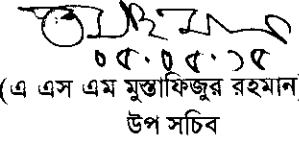 ০৫.০৫.১৫
(এ এস এম মুস্তাফিজুর রহমান)
উপ সচিব